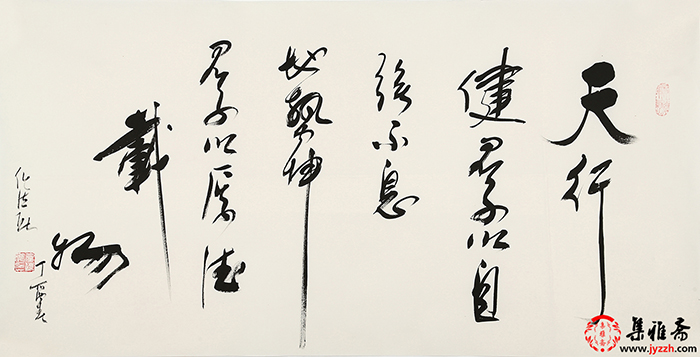 天行
健君子以自
强不息
地勢坤
君子以厚德
載物
丁酉
任法融
集雅斋
www.jyzzh.com